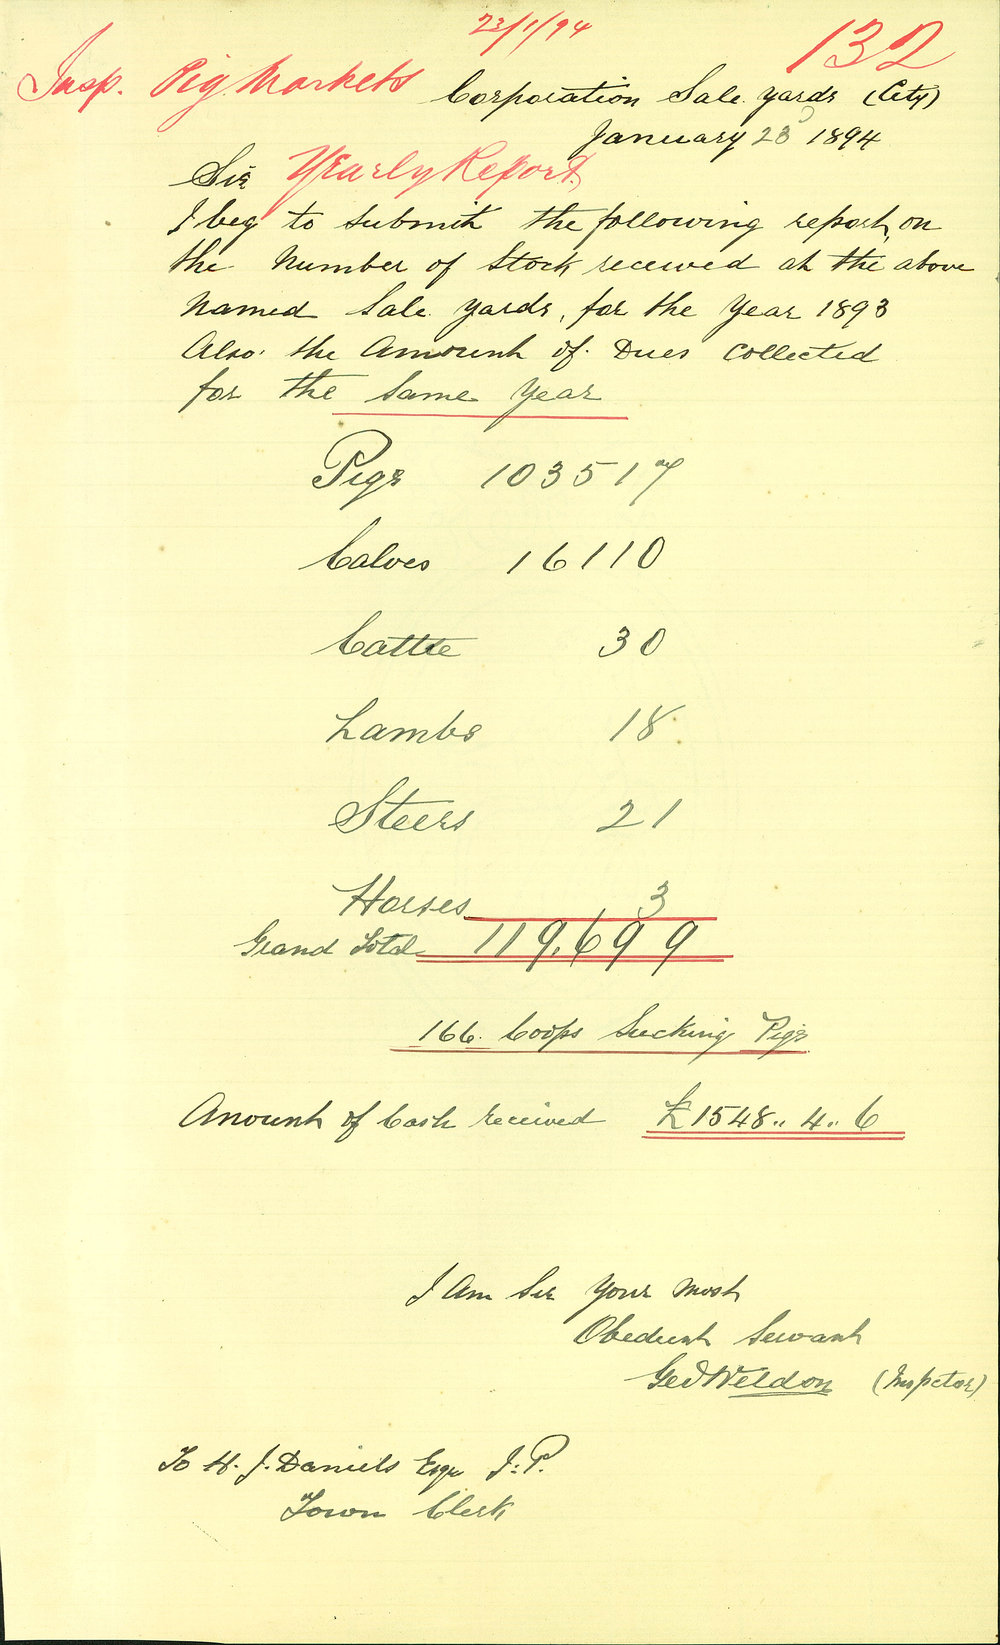 23/1/94
132
Insp. Pig Markets
Corporation Sale yards (City)
January 23 1894
Sir
Yearly Report
I beg to submit the following report, on
the Number of Stock received at the above
Named Sale yards, for the Year 1893
Also the Amount of Dues Collected
for the Same Year
Pigs 103517
Calves 16110
Cattle 30
Lambs 18
Steers 21
Horses 3
Grand Total 119.699
166. Coops Sucking Pigs
Amount of Cash received £1548.. 4.. 6
I Am Sir Your Most
Obedient Servant
Geo Weldon (Inspetor)
To H. J. Daniels Esqr J.P.
Town Clerk